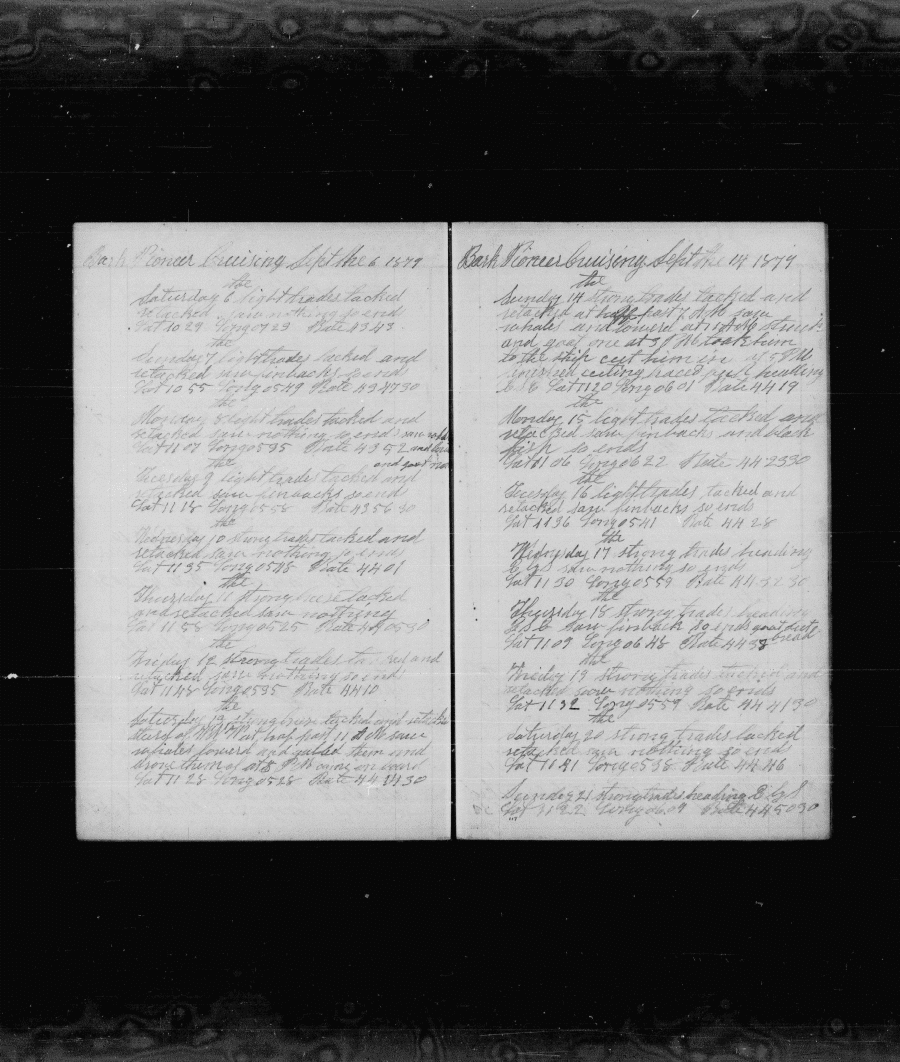 Bark Pioneer Cruising Sept the 6 1879
the
Saturday 6 light trades tacked
retacked saw nothing so end
Lat 10 29 Long 0723 Rate 4343
the
Sunday 7 light trades tacked and
retacked saw finbacks so ends
Lat 10 55 Long 0549 Rate 434730
the
Monday 8 light trades tacked and
retacked saw nothing so ends saw
Lat 11 07 Long 0535 Rate 4352 and
the and got
Tuesday 9 light trades tacked and
retacked saw finbacks so end
Lat 11 18 Long 0558 Rate 4356 30
the
Wednesday 10 strong trades tacked and
retacked saw nothing so ends
Lat 11 35 Long 0548 Rate 4401
the
Thursday 11 strong tacked
and retacked saw nothing
Lat 11 58 Long 0525 Rate 440530
the
Friday 12 strong trades tacked and
retacked saw nothing so ends
Lat 11 48 Long 0535 Rate 4410
the
Saturday 13 strong tacked and
of half past 11 A M saw
whales lowerd and them and
drove them of at 3 P M on board
Lat 11 28 Long 0528 Rate 44 30
Bark Pioneer Cruising Sept the 14 1879
the
Sunday 14 strong trades tacked and
retacked at half past 7 A M saw
whales and lowerd at A M struck
and one at P M took him
to the ship cut him in 5 P M
cutting heading
Lat 11 20 Long 0601 Rate 4419
the
Monday 15 light trades tacked and
retacked saw finbacks and black
fish so ends
Lat 11 06 Long 0622 Rate 442330
the
Tuesday 16 light trades tacked and
retacked saw finbacks so ends
Lat 11 36 Long 0541 Rate 44 28
the
Wednesday 17 strong trades heading
saw nothing so ends
Lat 11 30 Long 0559 Rate 443230
the
Thursday 18 strong trades heading
saw finback so ends
Lat 11 09 Long 0648 Rate 4438 bread
the
Friday 19 strong trades tacked and
retacked saw nothing so ends
Lat 11 32 Long 0559 Rate 444130
the
Saturday 20 strong trades tacked
retacked saw nothing so ends
Lat 11 41 Long 0538 Rate 44 46
Sunday 21 strong trades heading E by S
Lat 11 22 Long 0609 Rate 445030